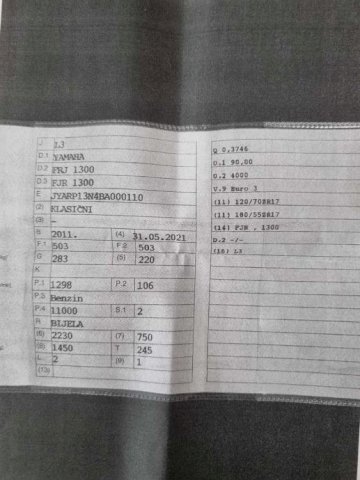 J L3
D.1 YAMAHA
D.2 FRJ 1300
D.3 FJR 1300
E JYARP13N4BA000110
(2) KLASIČNI
(3) –
B 2011. (4) 31.05.2021
F.1 503 F.2 503
G 283 (5) 220
K
P.1 1298 P.2 106
P.3 Benzin
P.4 11000 S.1 2
R BIJELA
(6) 2230 (7) 750
(8) 1450 T 245
L 2 (9) 1
(13)
Q 0,3746
U.1 90,00
U.2 4000
V.9 Euro 3
(11) 120/70ZR17
(11) 180/55ZR17
(14) FJR , 1300
D.2 -/-
(16) L3